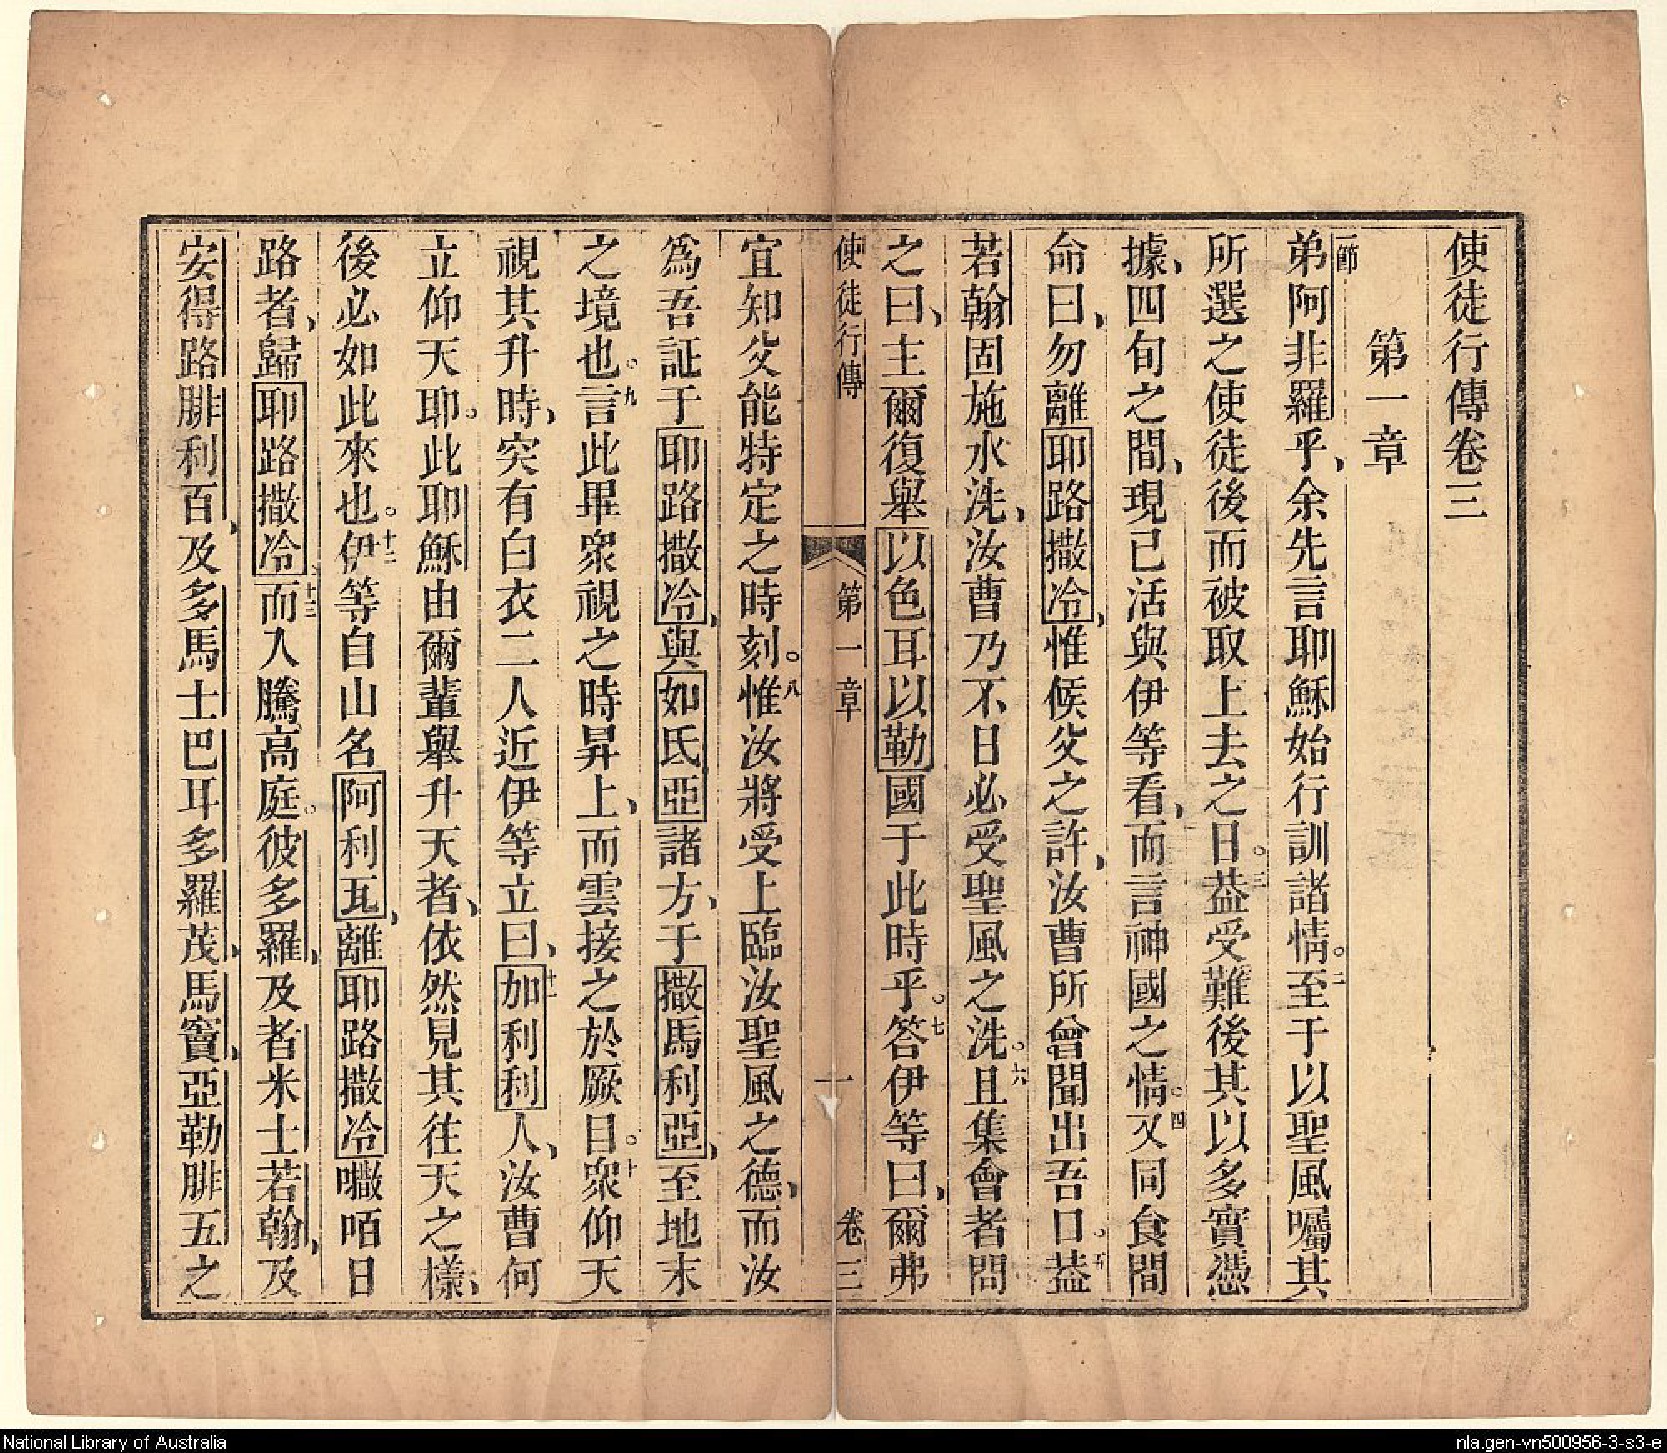 使徒行傳卷三
第一章
一節
弟阿非羅乎、余先言耶穌始行訓諸情。二至于以聖風囑其
所選之使徒後而被取上去之日。三葢受難後其以多實憑
據、四旬之間、現已活與伊等看、而言神國之情。四又同食間
命曰、勿離耶路撒冷、惟候父之許、汝曹所曾聞出吾口。五葢
若翰固施水洗、汝曹乃不日必受聖風之洗。六且集會者問
之曰、主爾復舉以色耳以勒國于此時乎。七答伊等曰、爾弗
使徒行傳 第一章 一 卷三
宜知父能特定之時刻。八惟汝將受上臨汝聖風之德、而汝
爲吾証于耶路撒冷、與如氐亞諸方、于撒馬利亞、至地末
之境也。九言此畢眾視之時昇上、而雲接之於厥目。十眾仰天
視其升時、突有白衣二人近伊等立曰、十一加利利人、汝曹何
立仰天耶。此耶穌由爾輩舉升天者、依然見其往天之樣、
後必如此來也。十二伊等自山名阿利瓦、離耶路撒冷囐咟日
路者、歸耶路撒冷、十三而入騰高庭。彼多羅、及者米士若翰、及
安得路腓利百、及多馬士巴耳多羅茂、馬竇、亞勒腓五之
National Library of Australia
nla.gen-vn500956-3-s3-e